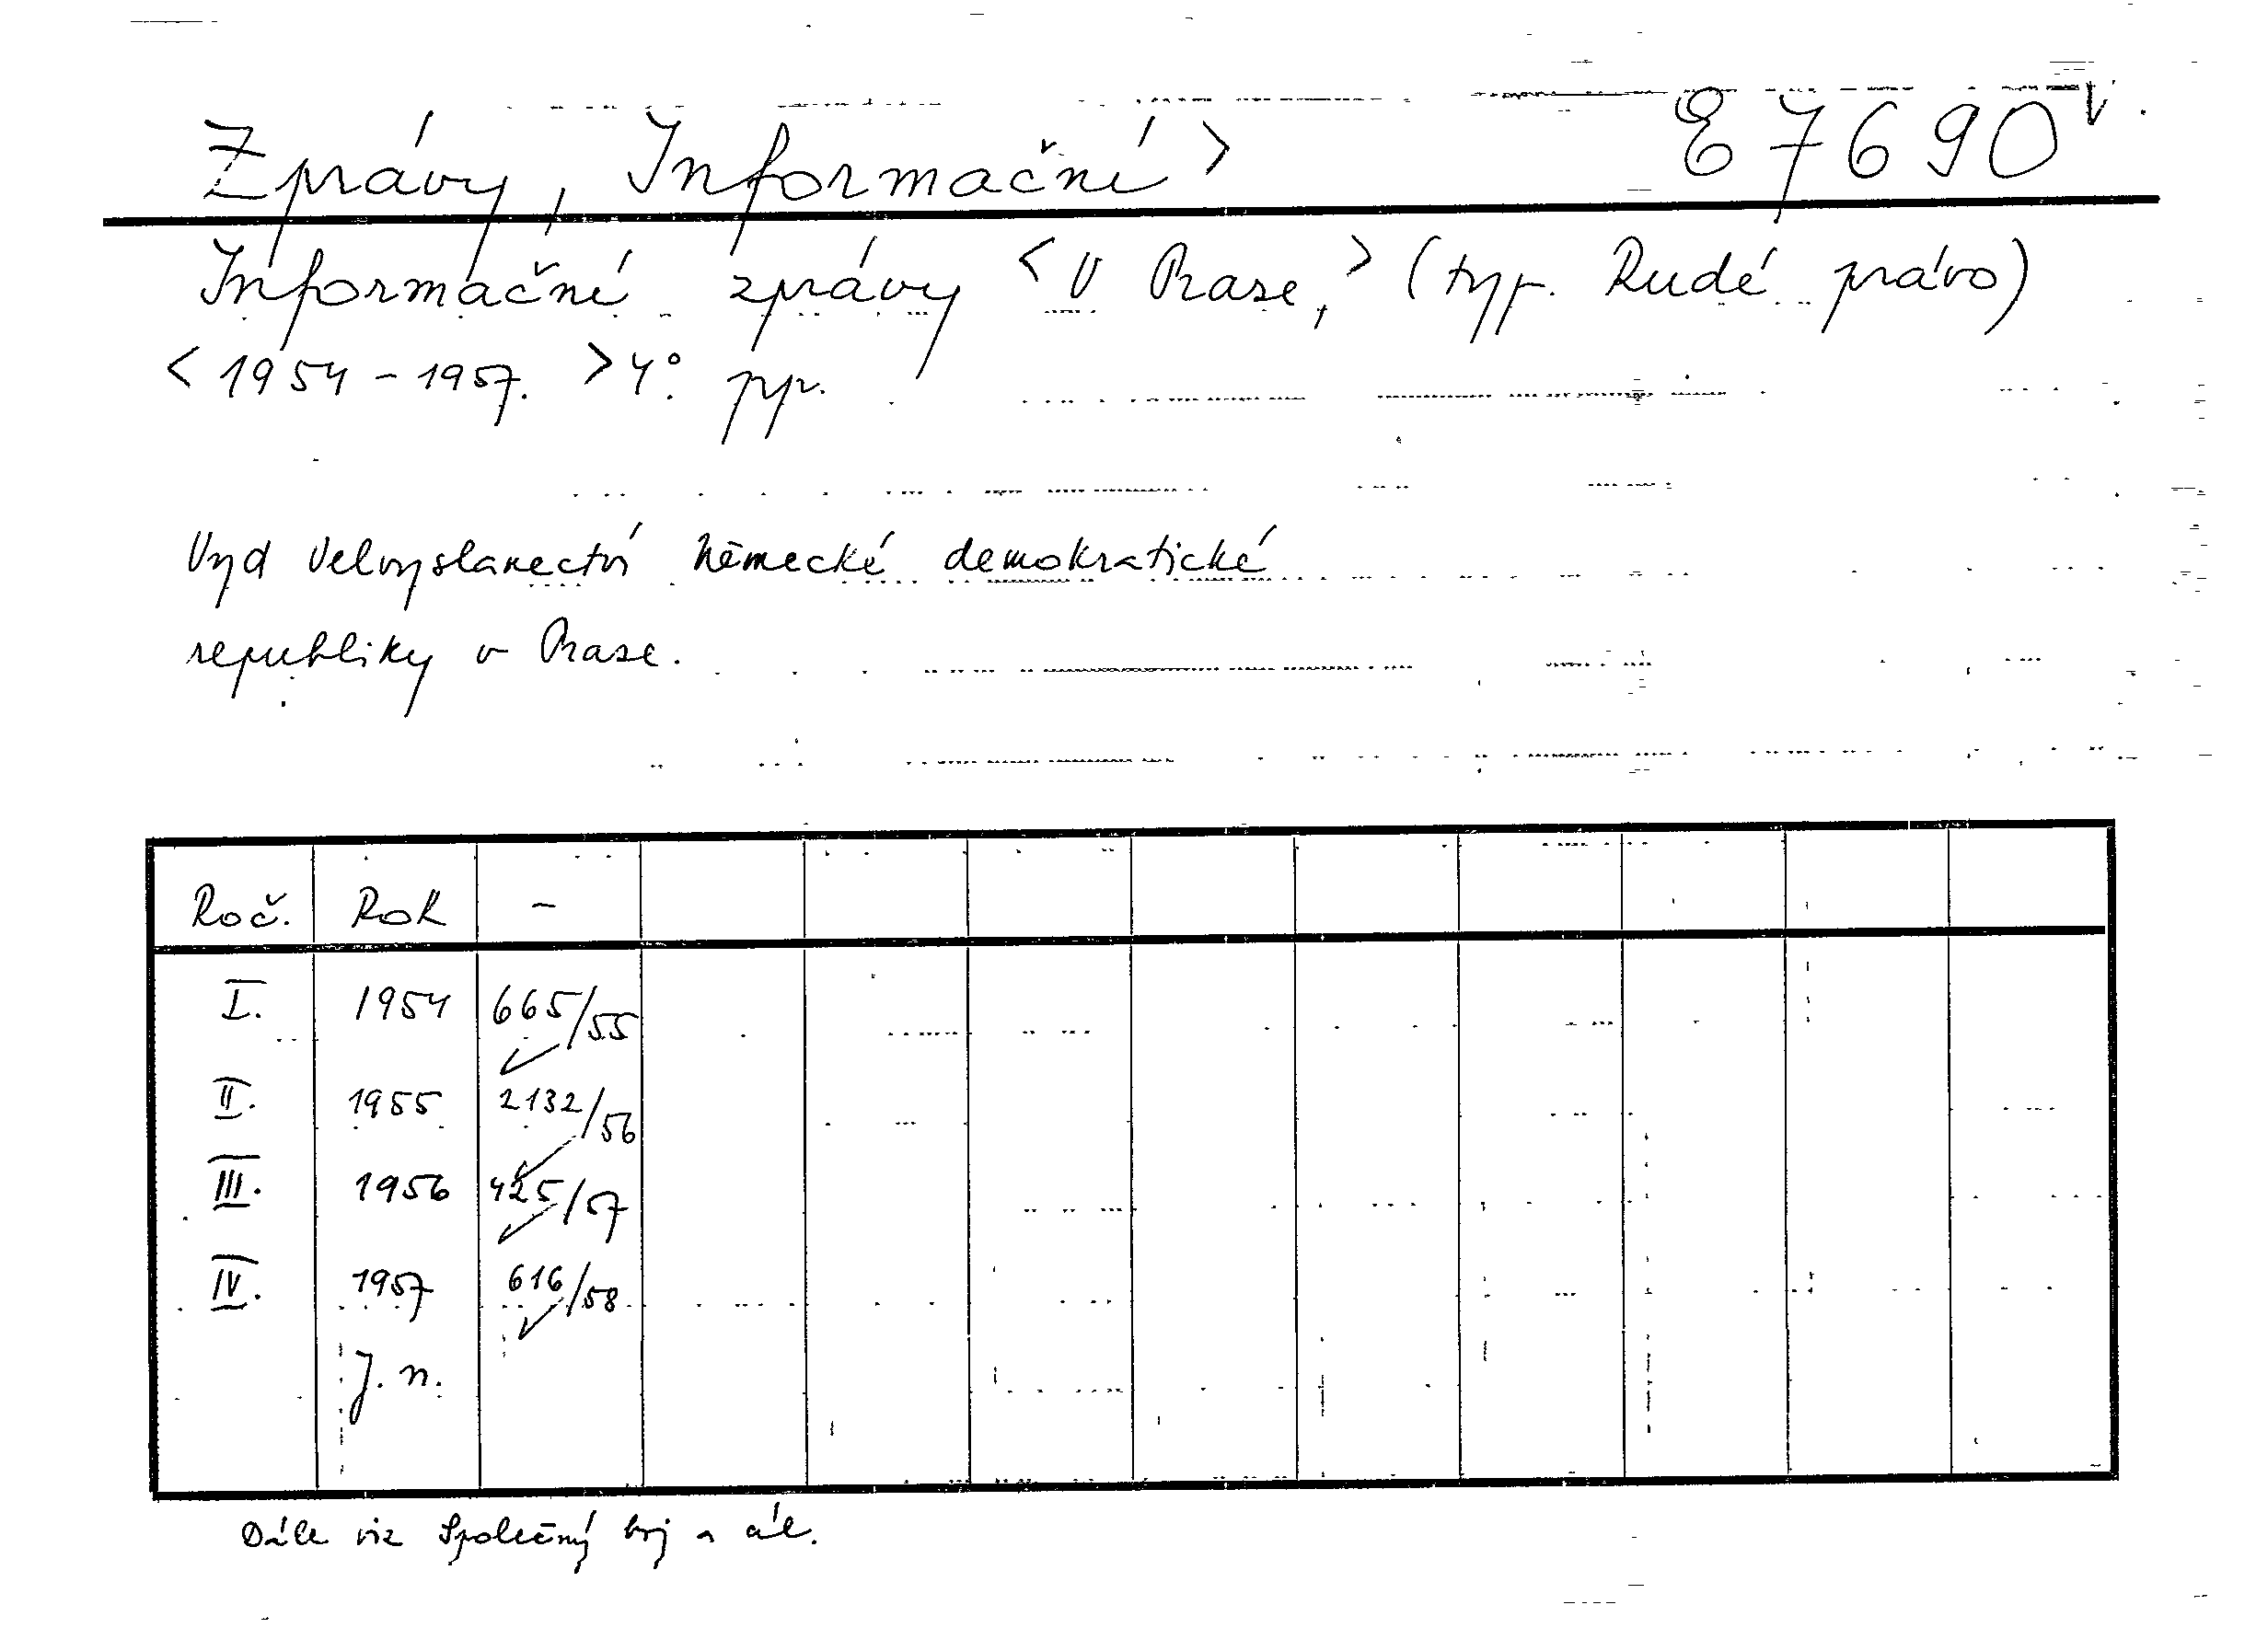 Zprávy, Informační >
E 7690
Informační zprávy < V Praze, > (typ. Rudé právo)
< 1954 – 1957. > 4°. pp.
Vyd Velvyslanectví Německé demokratické
republiky v Praze.
Roč. Rok –
I. 1954 665/55
II. 1955 2132/56
III. 1956 425/57
IV. 1957 616/58
J. n.
Dále viz Společný boj a